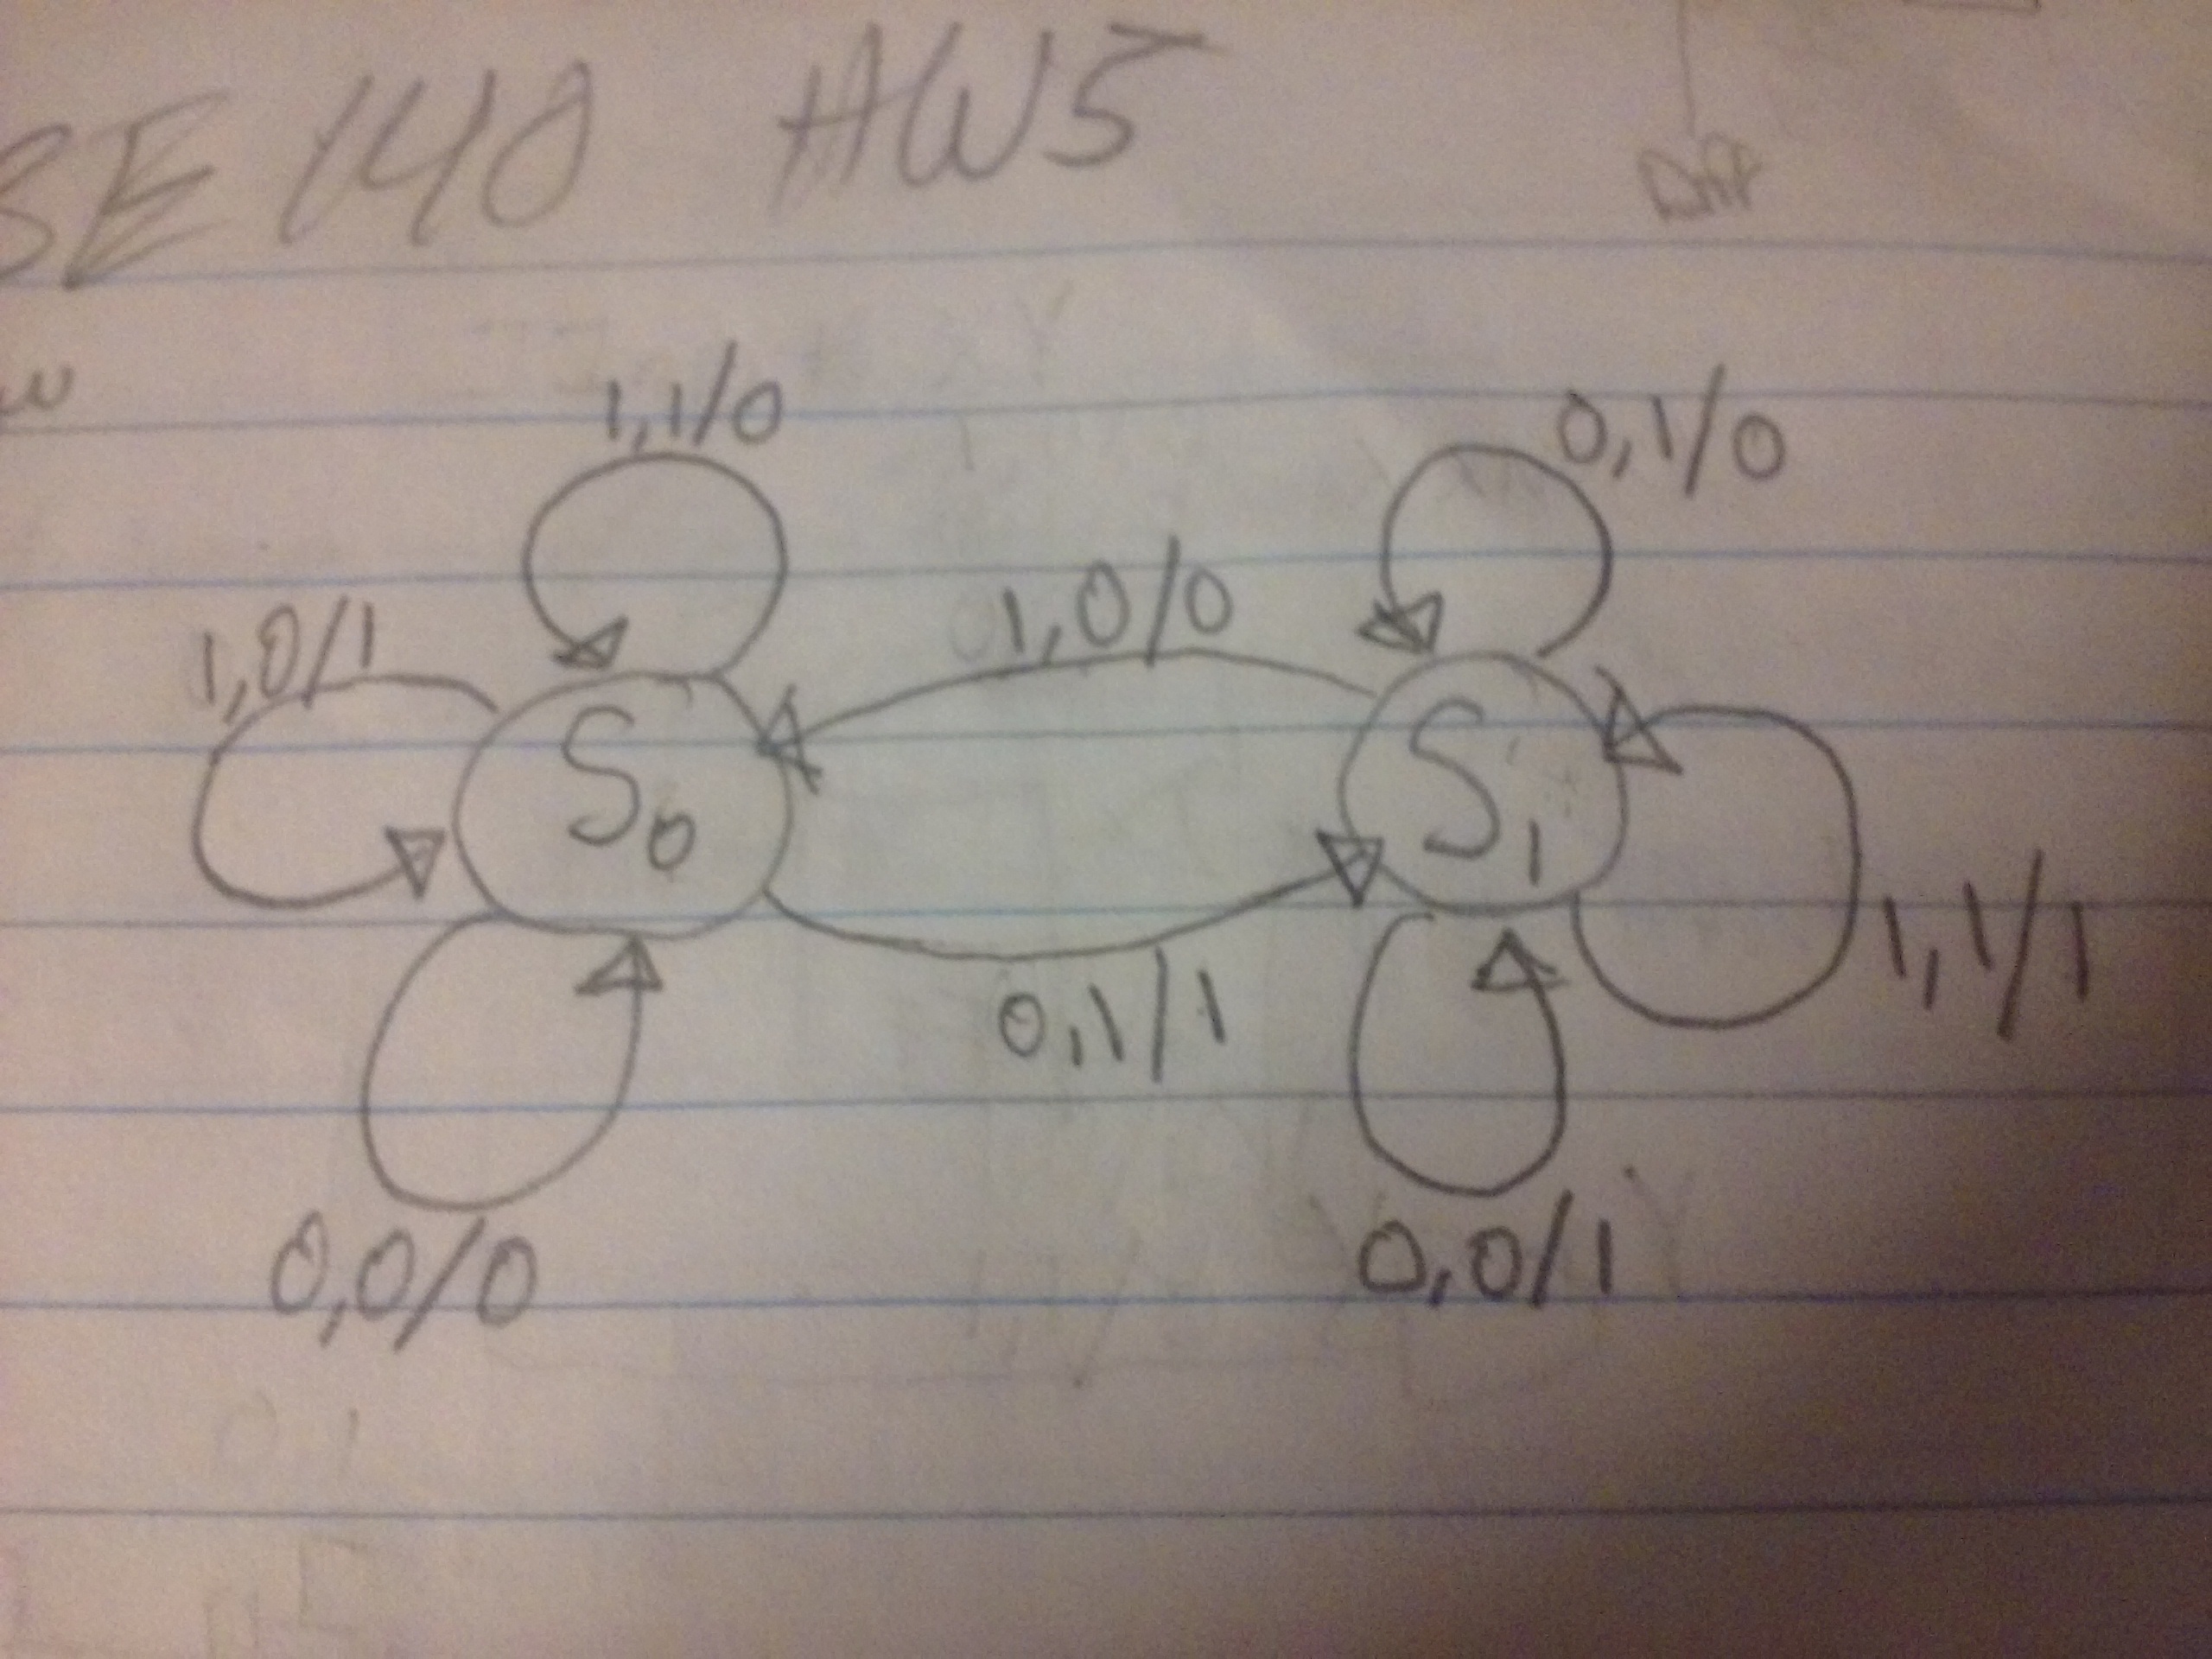 SE 140 HW5
Diff
1,1/0
0,1/0
1,0/1
1,0/0
S0
S1
1,1/1
0,1/1
0,0/0
0,0/1